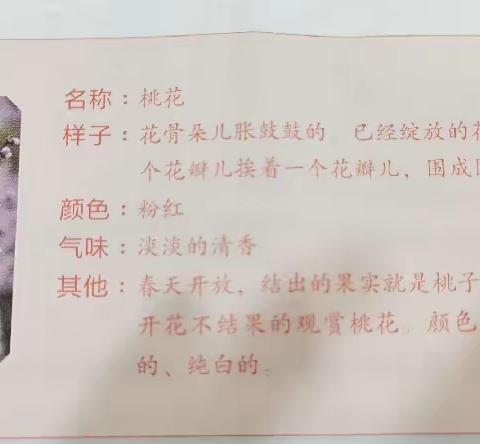 名称：桃花
样子：花骨朵儿胀鼓鼓的 已经绽放的花
个花瓣儿挨着一个花瓣儿，围成
颜色：粉红
气味：淡淡的清香
其他：春天开放，结出的果实就是桃子
开花不结果的观赏桃花。颜色
的、纯白的。